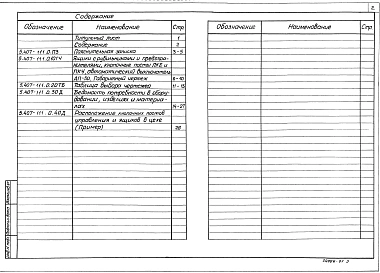 2
Содержание
Обозначение Наименование Стр.
Обозначение Наименование Стр.
Титульный лист 1
Содержание 2
5.407-111.0.ПЗ Пояснительная записка 3-5
5.407-111.0.10ГЧ Ящики с рубильниками и предохра-
нителями, кнопочные посты ПКЕ и
ПКУ, автоматический выключатель
АП-50. Габаритный чертеж 6-10
5.407-111.0.20ТБ Таблица выбора чертежей 11-13
5.407-111.0.30Д Ведомость потребности в обору-
довании, изделиях и материа-
лах 14-27
5.407-111.0.40Д Расположение кнопочных постов
управления и ящиков в цехе
(Пример) 28